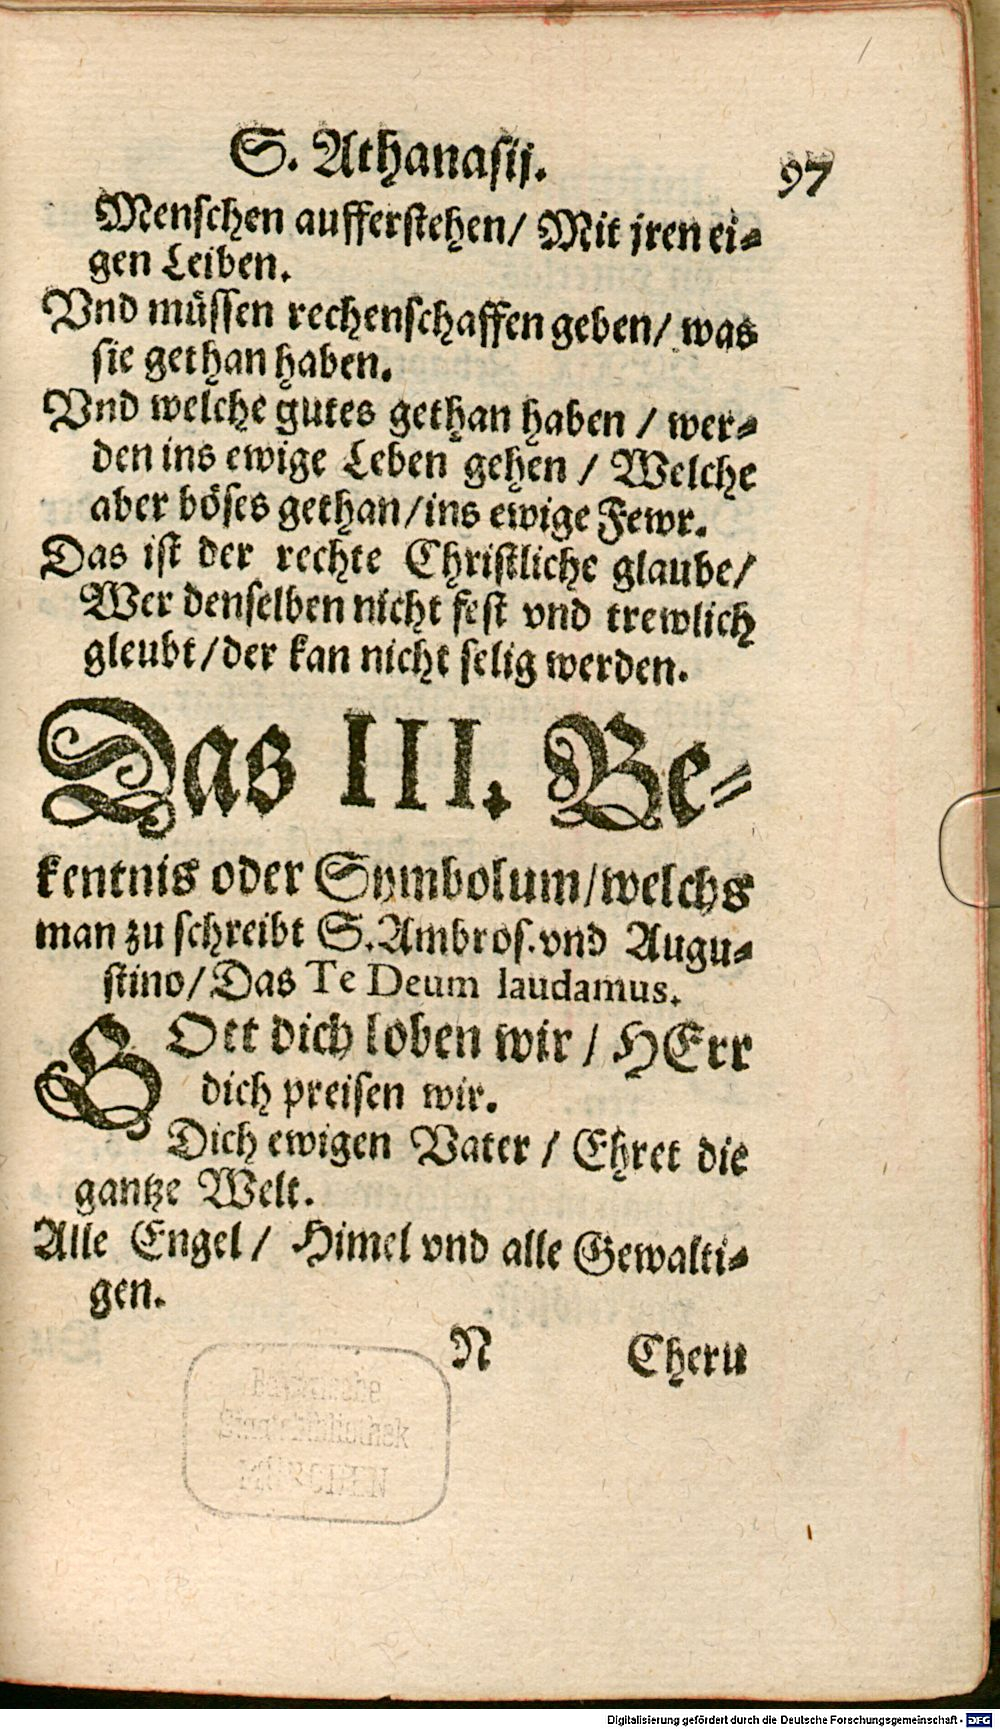 S. Athanasij. 97
Menschen aufferstehen/ Mit jren ei⸗
gen Leiben.
Vnd müssen rechenschaffen geben/ was
sie gethan haben.
Vnd welche gutes gethan haben / wer⸗
den ins ewige Leben gehen / Welche
aber böses gethan/ins ewige Fewr.
Das ist der rechte Christliche glaube/
Wer denselben nicht fest vnd trewlich
gleubt/der kan nicht selig werden.
Das III. Be⸗
kentnis oder Symbolum/welchs
man zu schreibt S.Ambros.vnd Augu⸗
stino/Das Te Deum laudamus.
GOtt dich loben wir / HErr
dich preisen wir.
Dich ewigen Vater / Ehret die
gantze Welt.
Alle Engel / Himel vnd alle Gewalti⸗
gen.
N Cheru
Bayerische
Staatsbibliothek
MÜNCHEN
Digitalisierung gefördert durch die Deutsche Forschungsgemeinschaft - DFG